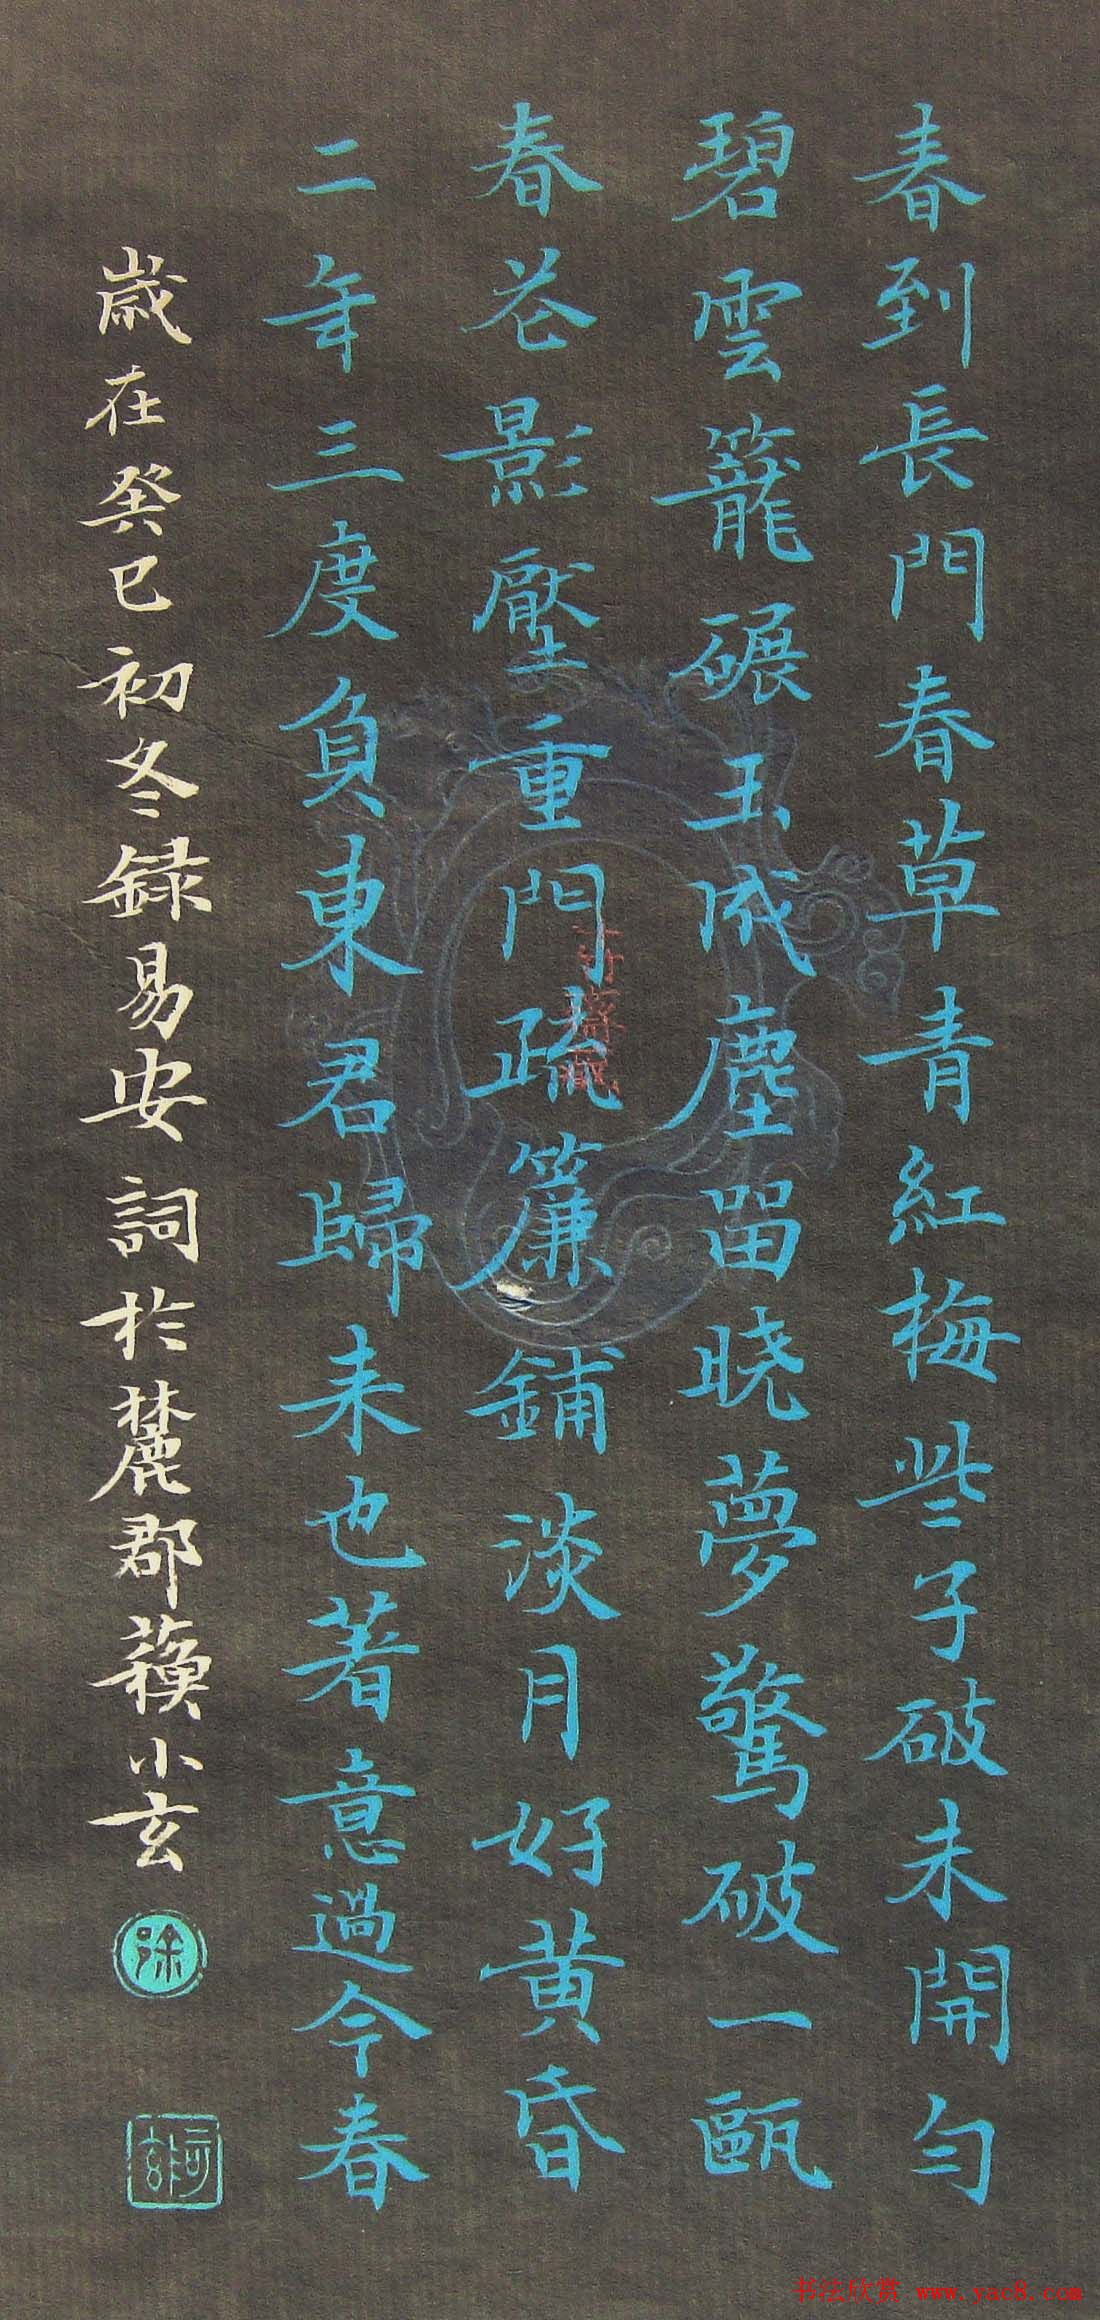 春到長門春草青紅梅些子破未開勻
碧雲籠碾玉成塵留晓夢驚破一甌
春花影壓重門疏簾鋪淡月好黄昏
二年三度負東君歸来也著意過今春
歲在癸巳初冬録易安詞於麓郡小玄
徐
书法欣赏 www.yac8.com